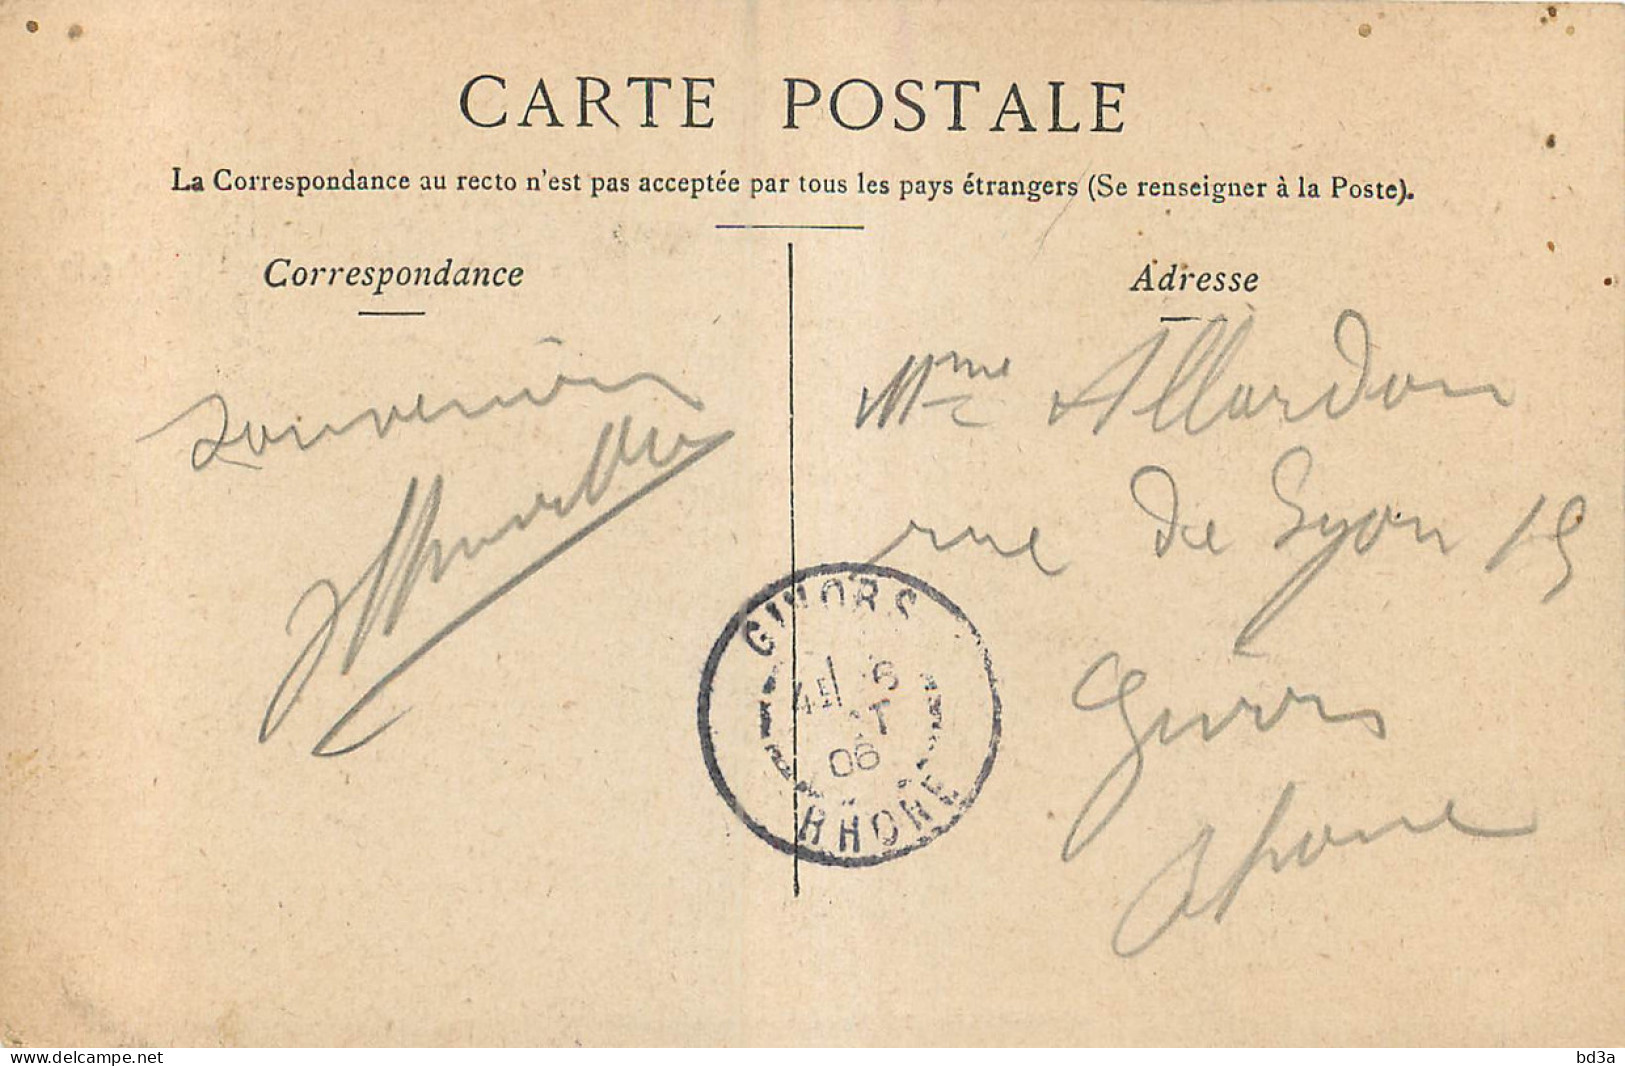 CARTE POSTALE
La Correspondance au recto n'est pas acceptée par tous les pays étrangers (Se renseigner à la Poste).
Correspondance
Souvenir
Adresse
Mme Allardon
rue de Lyon 15
Givors
Rhone
GIVORS
6
06
RHONE
www.delcampe.net
bd3a